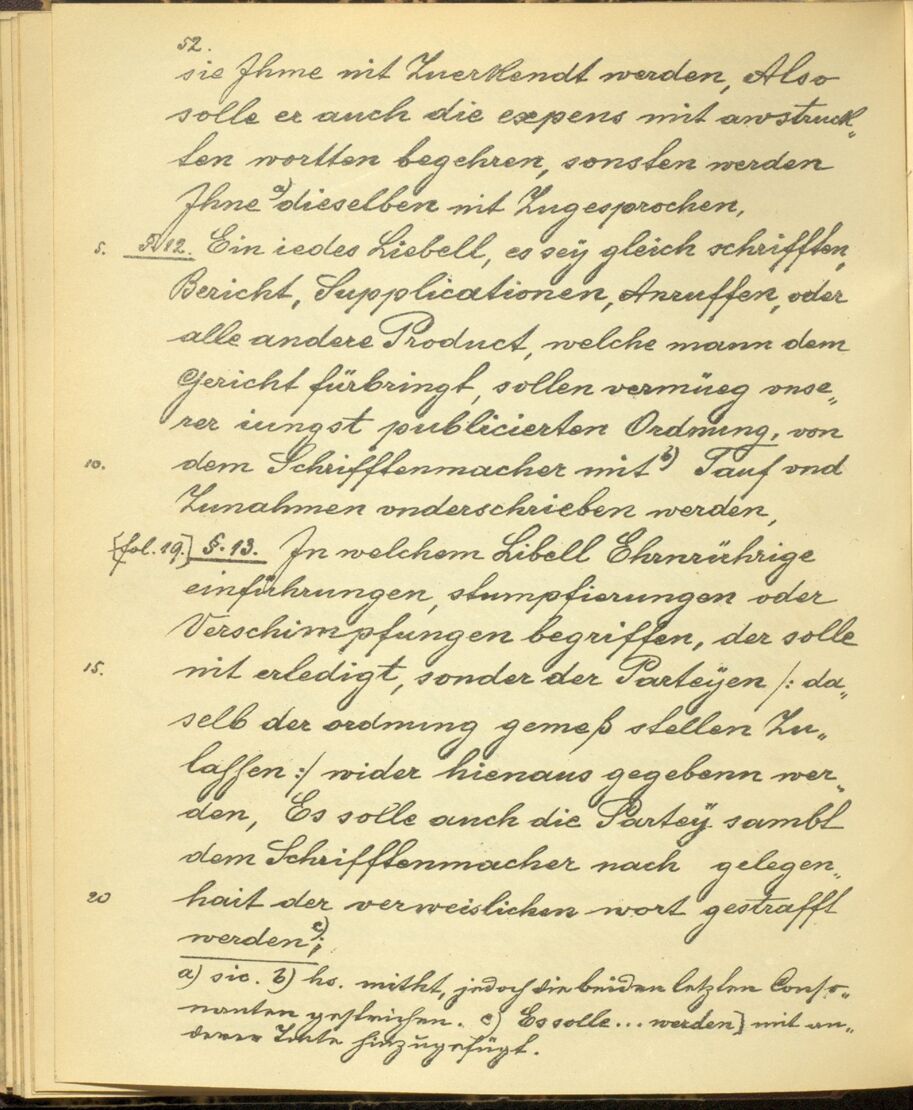 52.
sie Jhme nit Zuerkendt werden, Also
solle er auch die expens mit awstruck„
ten wortten begehren, sonsten werden
Jhne a) dieselben nit Zugesprochen,
5. §. 12. Ein iedes Liebell, es seÿ gleich schrifften,
Bericht, Supplicationen, Anruffen, oder
alle andere Product, welche mann dem
Gericht fürbringt, sollen vermüeg vnse„
rer iungst publicierten Ordnung, von
10. dem Schrifftenmacher mit b) Tauf vnd
Zunahmen vnderschrieben werden,
[fol. 19.] §. 13. Jn welchem Libell Ehrnrührige
einführungen, stumpfierungen oder
Verschimpfungen begriffen, der solle
15. nit erledigt, sonder der Parteÿen /: da„
selb der ordnung gemeß stellen Zu„
lassen :/ wider hienaus gegebenn wer„
den, Es solle auch die Parteÿ sambt
dem Schrifftenmacher nach gelegen„
20 hait der verweislichen wort gestrafft
werden c);
a) sic. b) hs. mitht, jedoch die beiden letzten Conso„
nanten gestrichen. c) Es solle... werden] mit an„
derer Tinte hinzugefügt.